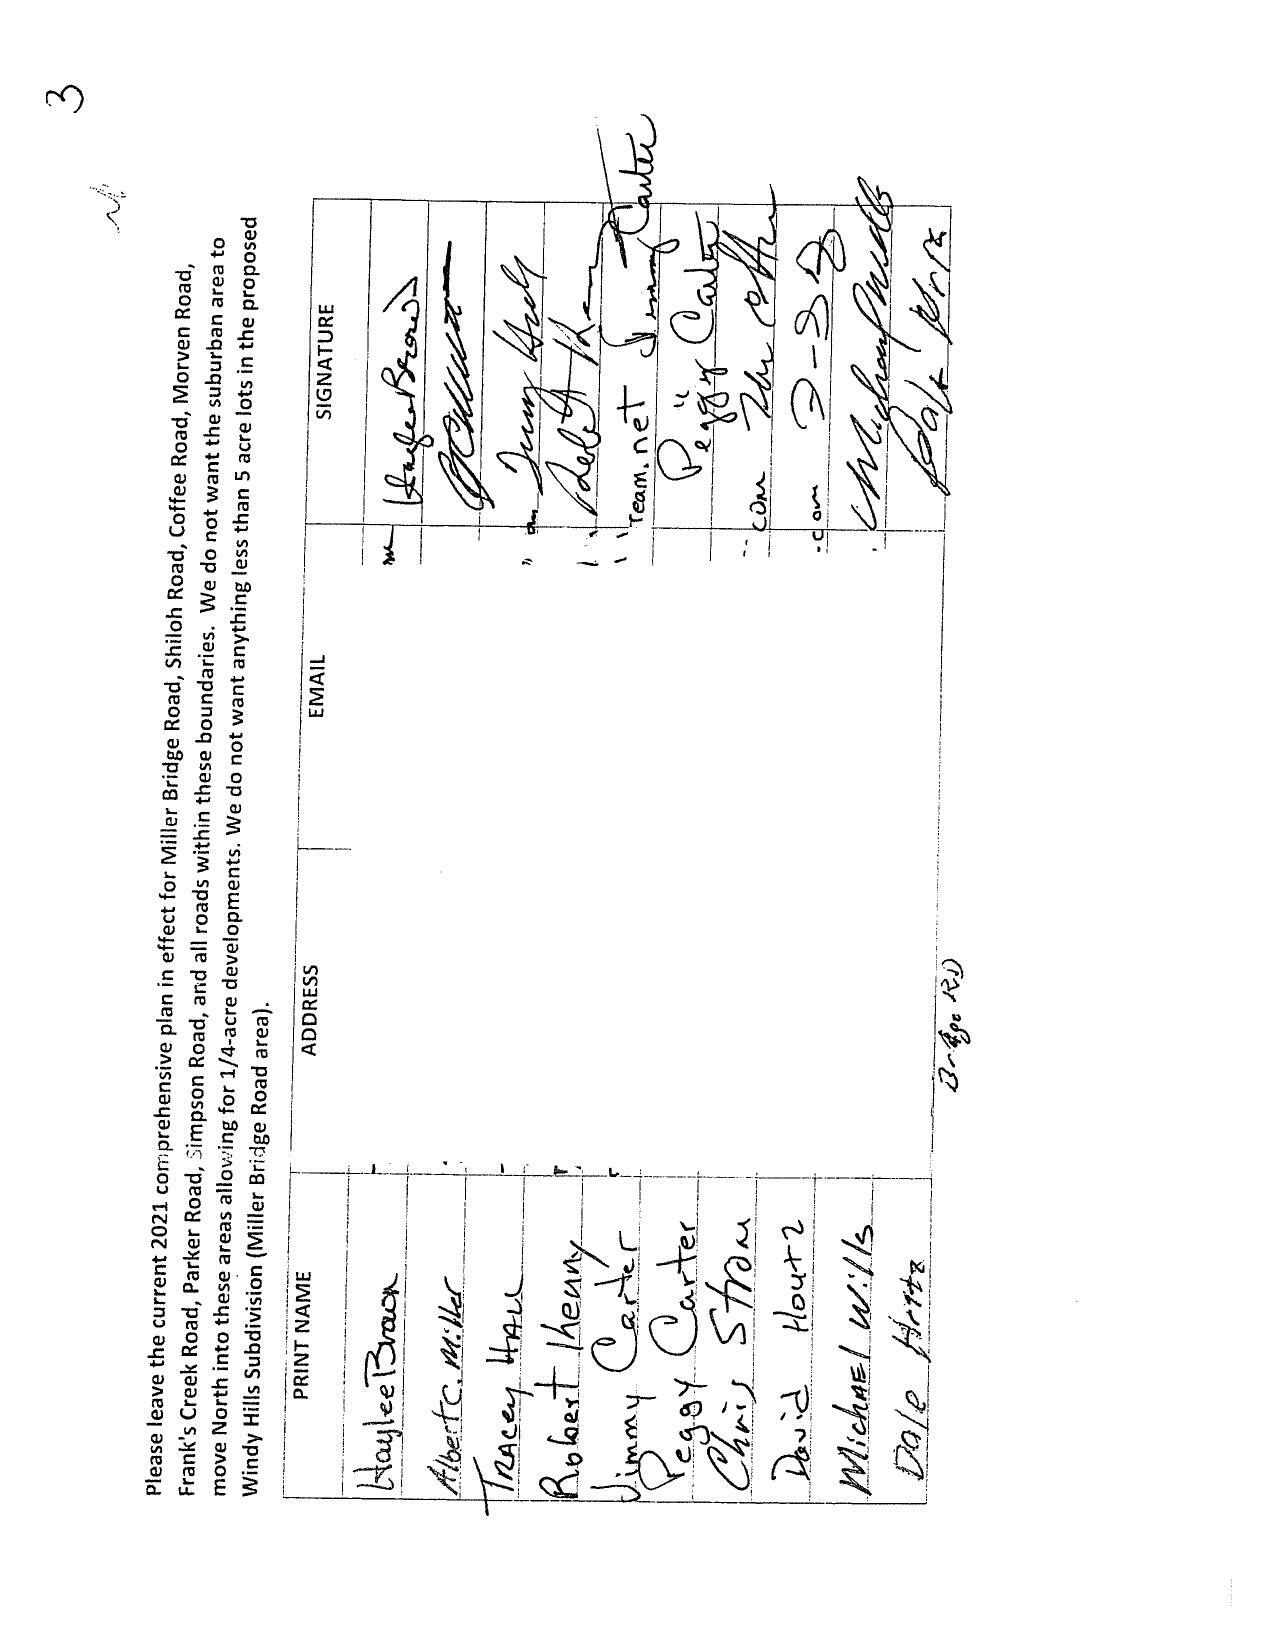 3
Please leave the current 2021 comprehensive plan in effect for Miller Bridge Road, Shiloh Road, Coffee Road, Morven Road,
Frank's Creek Road, Parker Road, Simpson Road, and all roads within these boundaries. We do not want the suburban area to
move North into these areas allowing for 1/4-acre developments. We do not want anything less than 5 acre lots in the proposed
Windy Hills Subdivision (Miller Bridge Road area).
PRINT NAME ADDRESS EMAIL SIGNATURE
Haylee Brown Haylee Brown
Albert C. Miller
TRACey HALL
Robert
Jimmy Carter Team.net Jimmy Carter
Peggy Carter " Peggy Carter
Chris Strom com
David Houtz .com
MichAEl Wills
Dale
Bridge RD